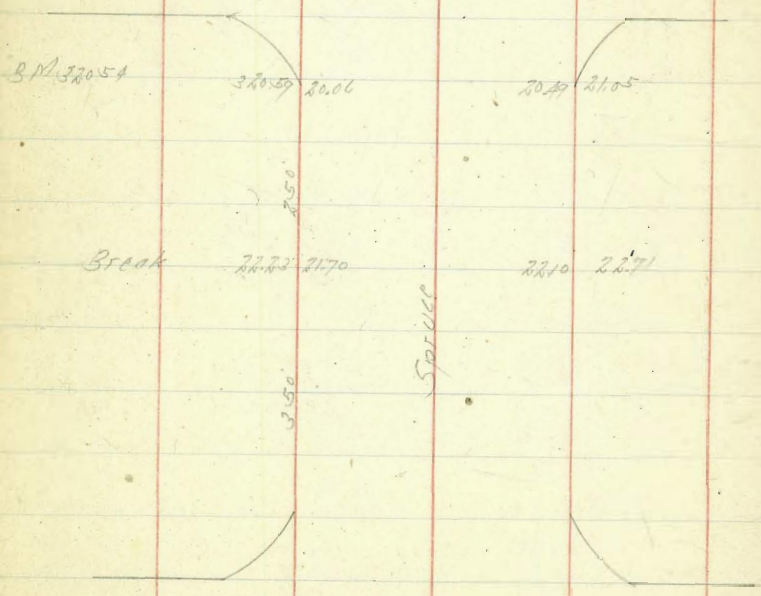 BM 320.54
320.59 20.06 20.49 21.05
250'
Break 22.23 21.70 22.10 22.71
Spruce
350'